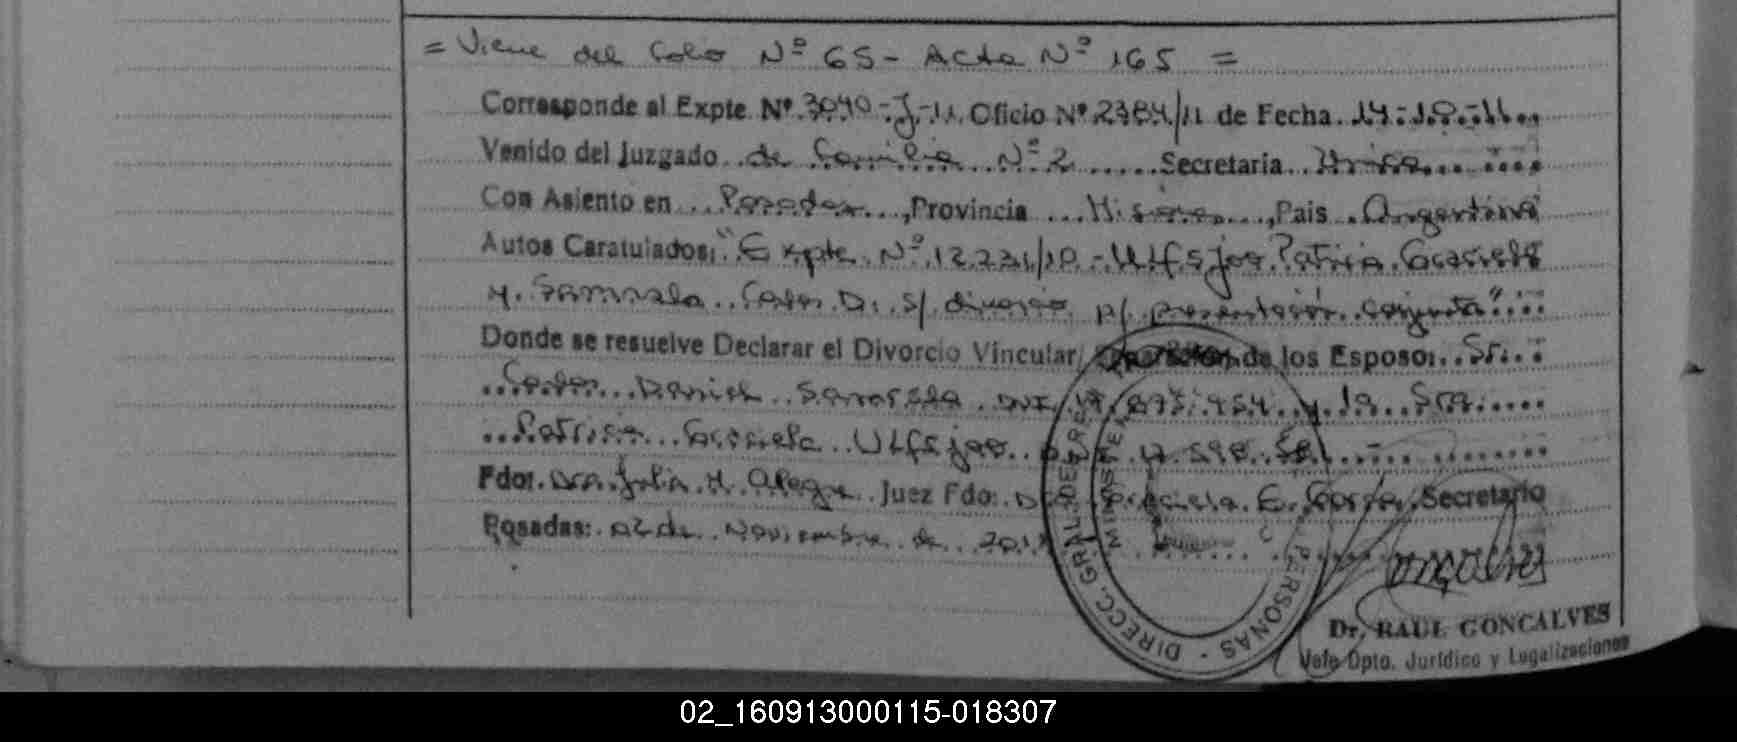 = Viene del Folio Nº 65 - Acta Nº 165 =
Corresponde al Expte. Nº 3040-J-11 Oficio Nº 2384/11 de Fecha 14-10-11
Venido del Juzgado de Familia Nº 2 Secretaria Unica
Con Asiento en Posadas, Provincia Misiones, Pais Argentina
Autos Caratulados: "Expte. Nº 12.231/10 - Ulfsjoo Patricia Graciela
y Carlos D. s/ divorcio p/ presentación conjunta"
Donde se resuelve Declarar el Divorcio Vincular/ de los Esposos: Sr.
Carlos Daniel DNI y la Sra.
Patricia Graciela Ulfsjoo
Fdo: Dra. Julia H. Alegre Juez Fdo: Graciela E. Secretario
Posadas: 02 de Noviembre de 2011
DIRECC. GRAL. DE REG. PERSONAS
MINISTE
Dr. RAUL GONCALVES
Jefe Dpto. Jurídico y Legalizaciones
02_160913000115-018307